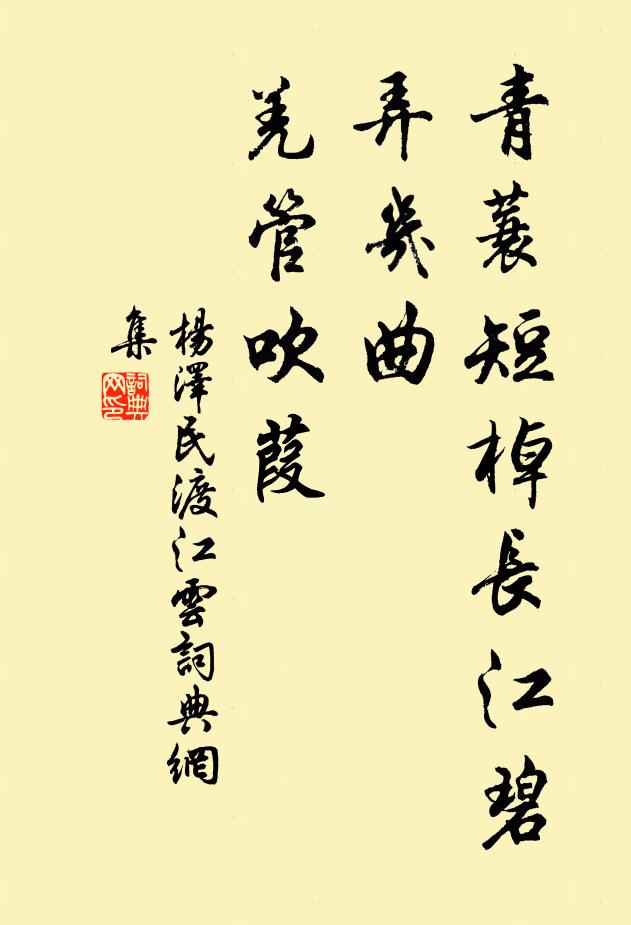 青蓑短棹長江碧
弄幾曲
羌管吹葭
楊澤民渡江雲詞典網
集
詞典
网印